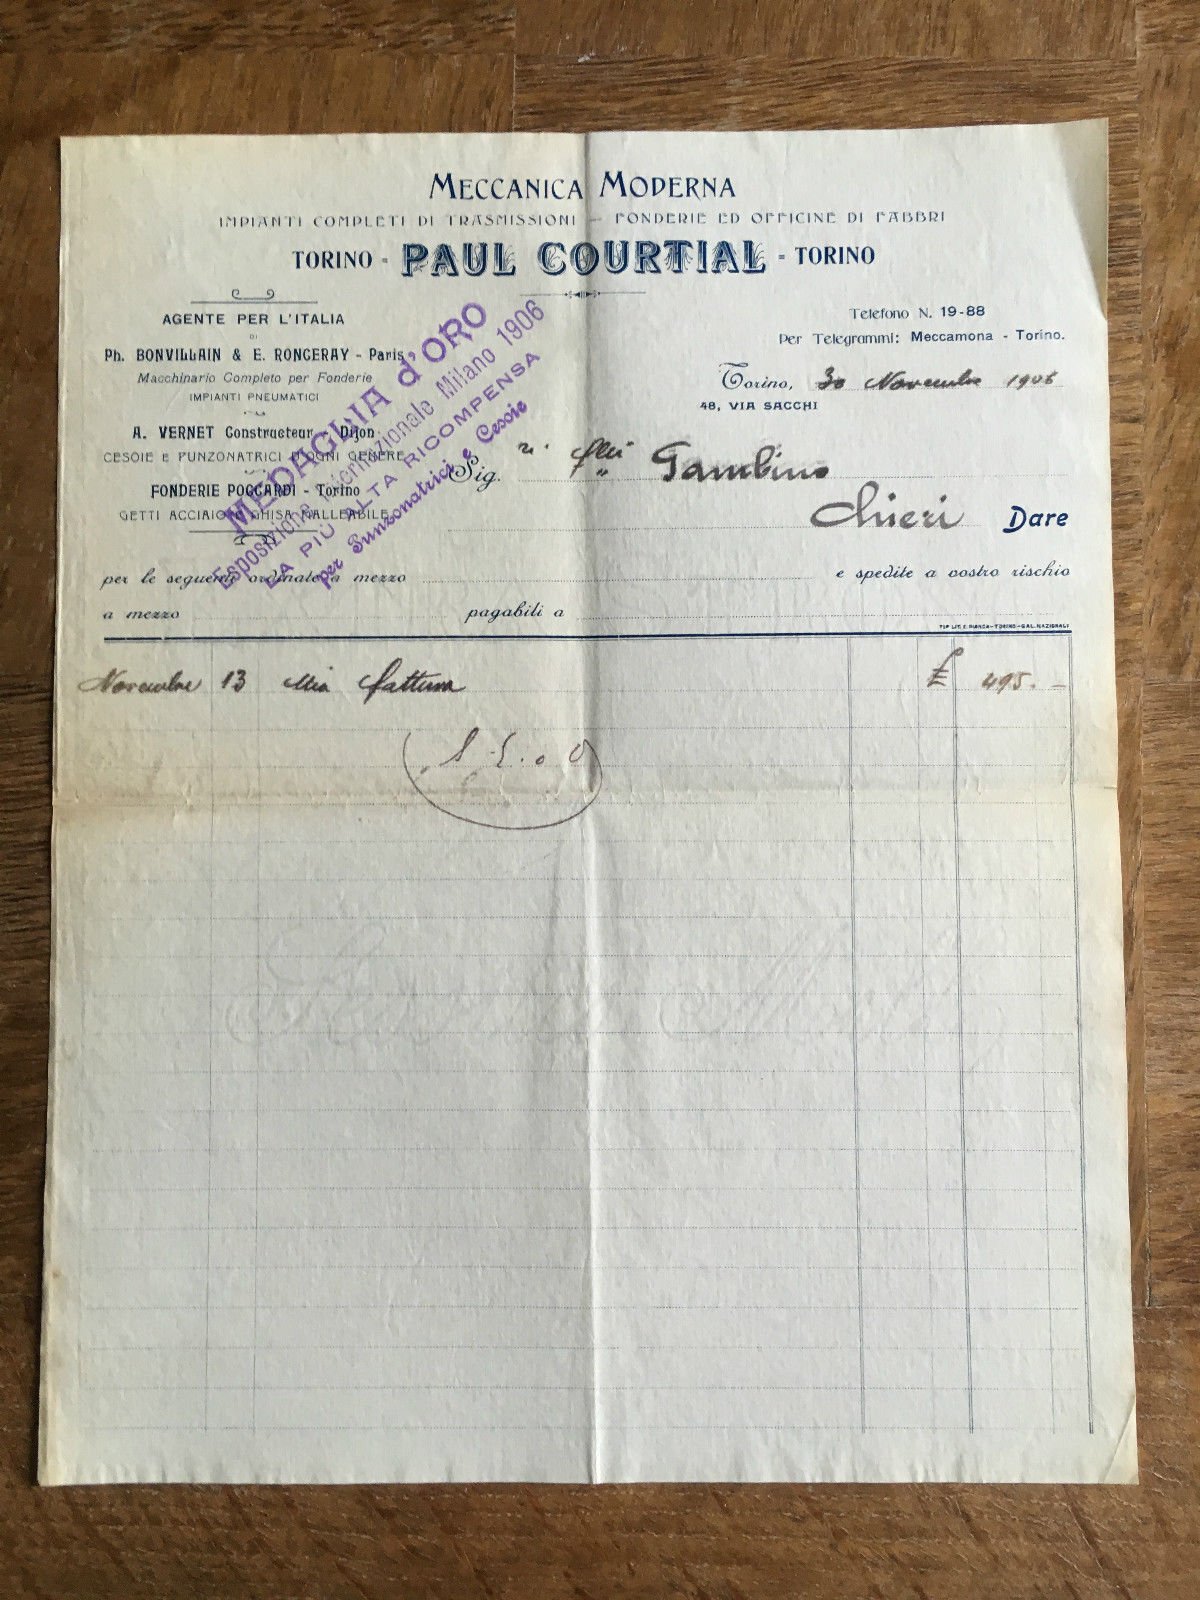 MECCANICA MODERNA
IMPIANTI COMPLETI DI TRASMISSIONI — FONDERIE ED OFFICINE DI FABBRI
TORINO - PAUL COURTIAL - TORINO
AGENTE PER L'ITALIA
DI
Ph. BONVILLAIN & E. RONCERAY - Paris
Macchinario Completo per Fonderie
IMPIANTI PNEUMATICI
A. VERNET Constructeur - Dijon
CESOIE E PUNZONATRICI D'OGNI GENERE
FONDERIE POCCARDI - Torino
GETTI ACCIAIO E GHISA MALLEABILE
MEDAGLIA d'ORO
Esposizione Internazionale Milano 1906
LA PIÙ ALTA RICOMPENSA
per Punzonatrici e Cesoie
Telefono N. 19-88
Per Telegrammi: Meccamona - Torino.
Torino, 30 Novembre 1906
48, VIA SACCHI
Sig. ri Flli Gambino
"
Chieri Dare
per le seguenti ordinate a mezzo e spedite a vostro rischio
a mezzo pagabili a
TIP. LIT. E. BIANCA-TORINO-GAL. NAZIONALE
Novembre 13 Mia fattura £ 495.-
S.E.o O